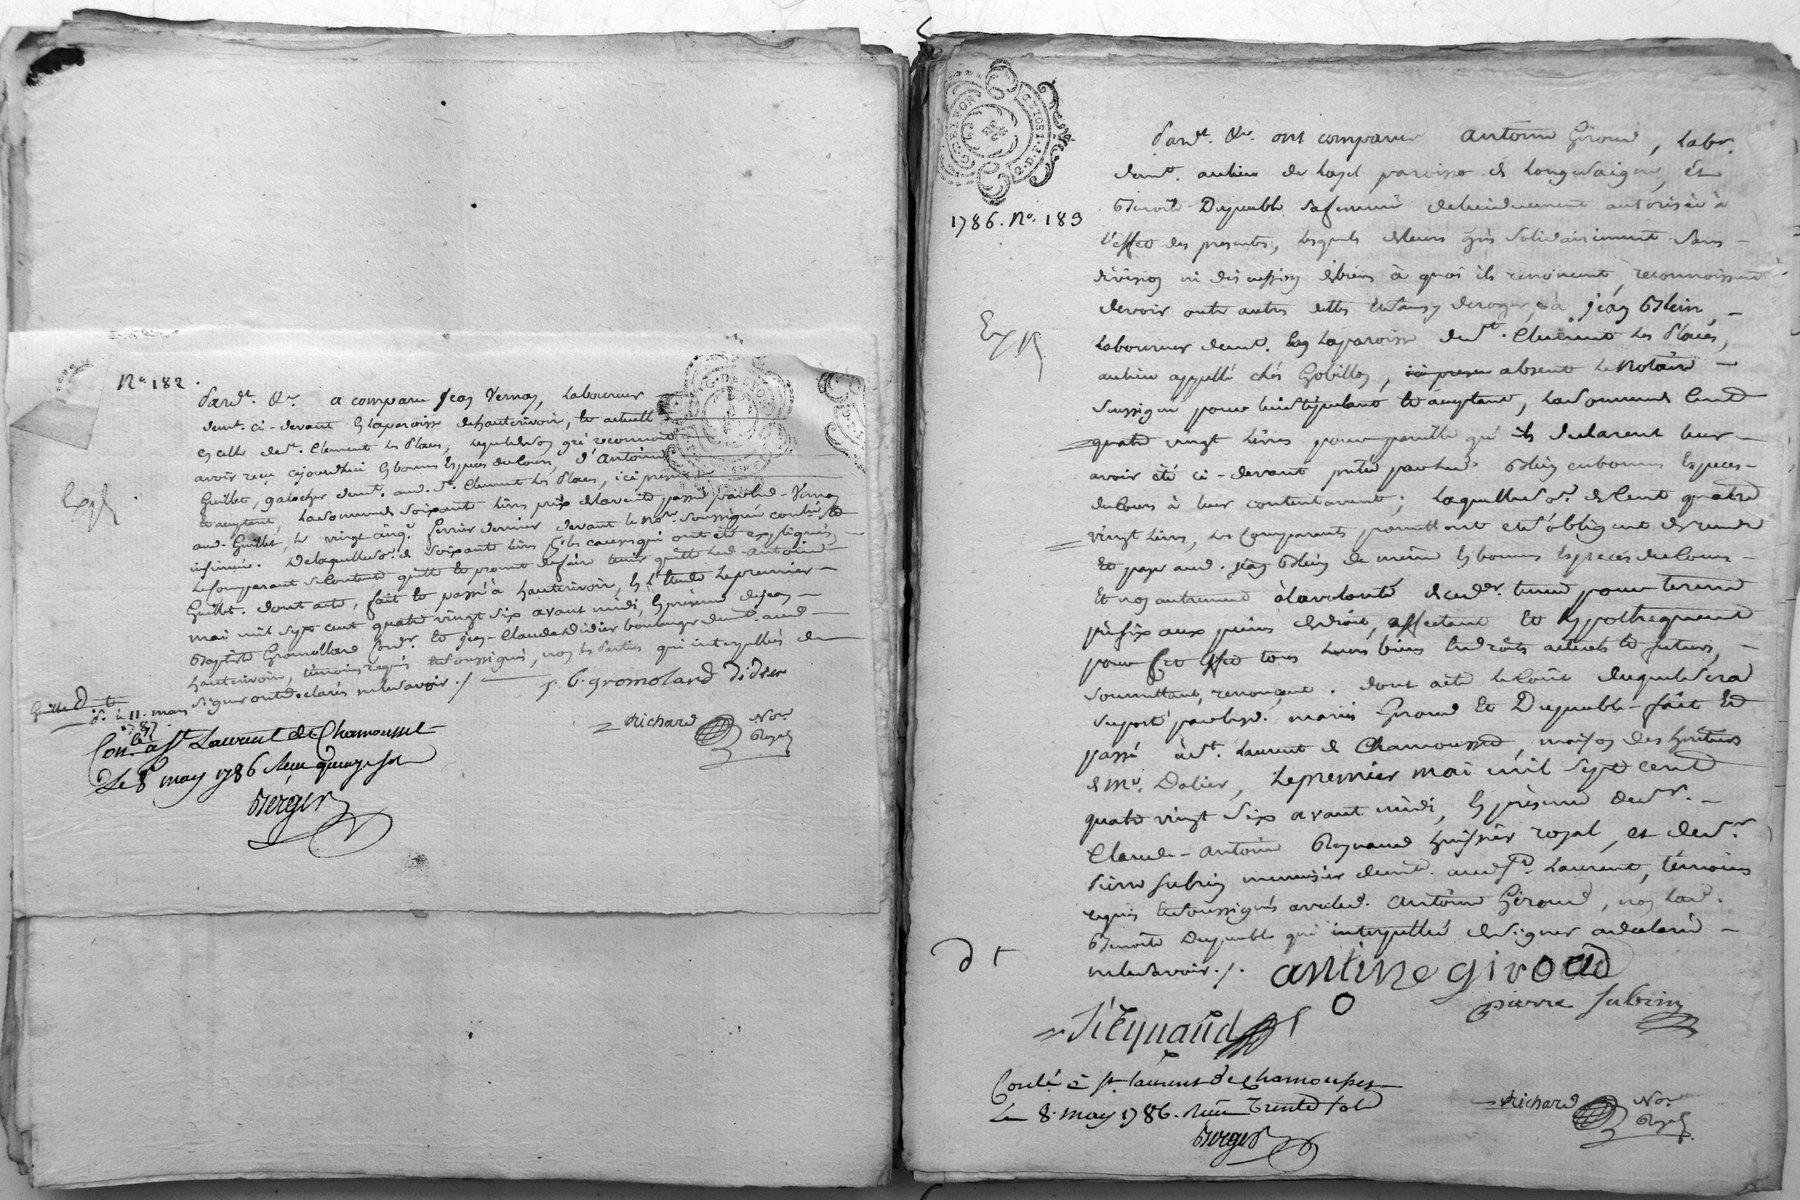 N.° 182.
Pard.t &.a a comparu Jean Vernay, Laboureur
demt. ci-devant en la paroisse de hauterivoir, et actuellt
en celle de St. Clement les Places, lequel de son gré reconnoit
avoir reçu cejourdhui en bonnes Espèces de cours, d'Antoine
Guillot, galocher demt. aud. St. Clement les Places, ici present
et acceptant, la somme de soixante livres prix de la vente passée par led. Vernay
aud. Guillot, le vingt cinq fevrier dernier devant le nore. soussigné controlé et
insinué. De laquelle so.e de soixante livres
le comparant se contente quitte et promet de faire tenir quitte led. Antoine
Guillot. dont acte, fait et passé à hauterivoir, en l'Etude le premier
mai mil sept cent quatre vingt six avant midi, en présence de Jean
Baptiste Gromolard et Jean-Claude Didier boulanger demt. aud.
hauterivoir, témoins requis et soussignés, non les Parties qui interpellées de
signer ont déclaré ne le savoir ./.
J. B. gromolard Didier
Exp
d. t
le 11. mars
1787.
Richard Nore.
Royal
Con.lé à St Laurent de Chamousset
Le 8 may 1786 Reçu quinze sol
Berger
1786. N°. 183
Pard.t &.a ont comparu Antoine Giroud, Labr.
demt. au lieu de paroisse de Longesaigne, Et
Benoite Dupeuble sa femme de lui duement autorisée à
l'effet des presentes, lesquels de leurs grés solidairement sans
division ni discussion de biens à quoi ils renoncent, reconnoissent
devoir outre autres dettes et sans y deroger, à Jean Blein,
Laboureur demt. en la paroisse de St. Clement les Places,
au lieu appellé chés Gobillon, absent le Notaire
soussigné pour lui stipulant et acceptant, la somme de Cent
quatre vingt livres pour pareille qu'ils declarent leur
avoir été ci-devant prêtée par led. Blein en bonnes Especes
de cours à leur contentement; laquelle so.e de Cent quatre
vingt livres, les Comparants promettent et s'obligent de rendre
et payer aud. Jean Blein de même en bonnes Especes de Cours
et non autrement à la volonté dud. tenue pour terme
préfix aux peines de droit, affectent et hypothequent
pour Cet effet tous leurs biens et droits actuels et futurs,
soumettant, renonçant. dont acte le Coût duquel sera
suporté par lesd. mariés Giroud et Dupeuble. fait et
passé à St. Laurent de Chamousset, maison des heritiers
de Mr. Dalier, le premier mai mil sept cent
quatre vingt six avant midi, en présence de Sr.
Claude-Antoine Reynaud huissier royal, et de Sr.
Pierre Subrin menuisier demt. aud. St. Laurent, témoins
requis et soussignés avec led. Antoine Giroud, non lad.
Benoite Dupeuble qui interpellée de signer a declaré
ne le savoir ./. antine giroud
Exp
d t
pierre subrin
Reynaud
Contlé à St laurent de chamousset
Le 8. may 1786. Reçu Trente sols
Berger
Richard Nore.
Royal